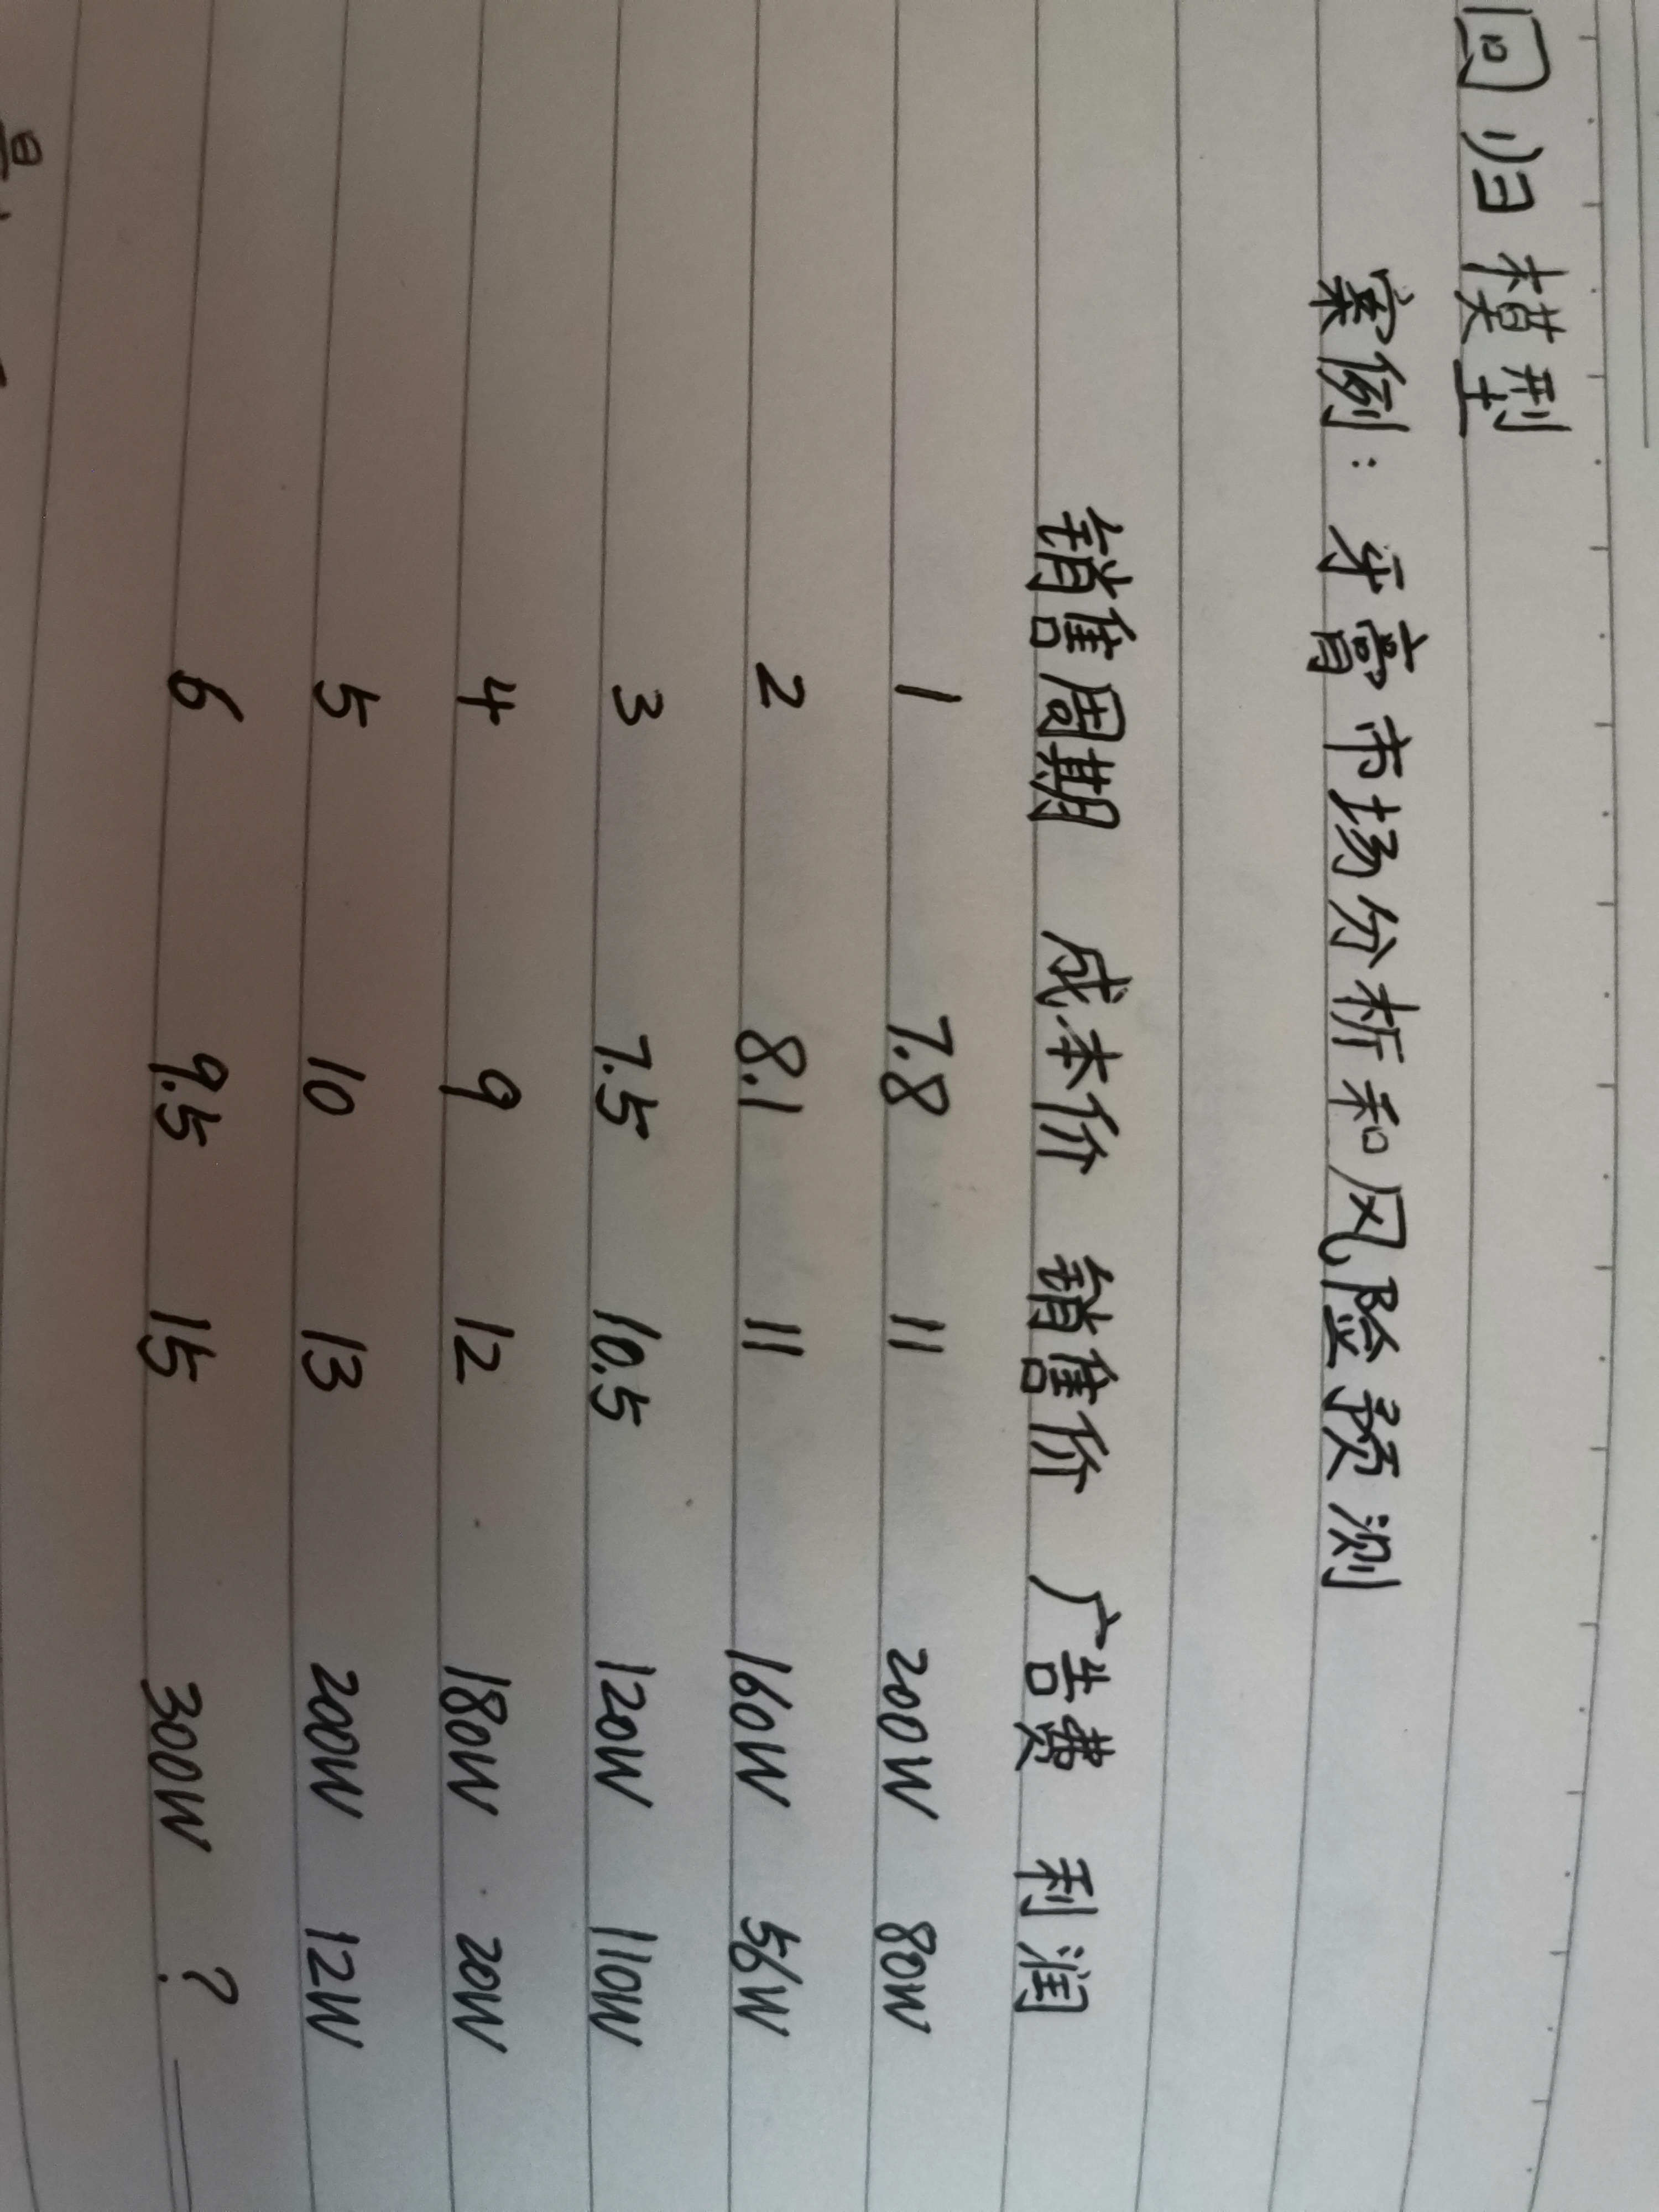 回归模型
案例：牙膏市场分析和风险预测
销售周期 成本价 销售价 广告费 利润
1 7.8 11 200W 80W
2 8.1 11 160W 56W
3 7.5 10.5 120W 110W
4 9 12 180W 20W
5 10 13 200W 12W
6 9.5 15 300W ?